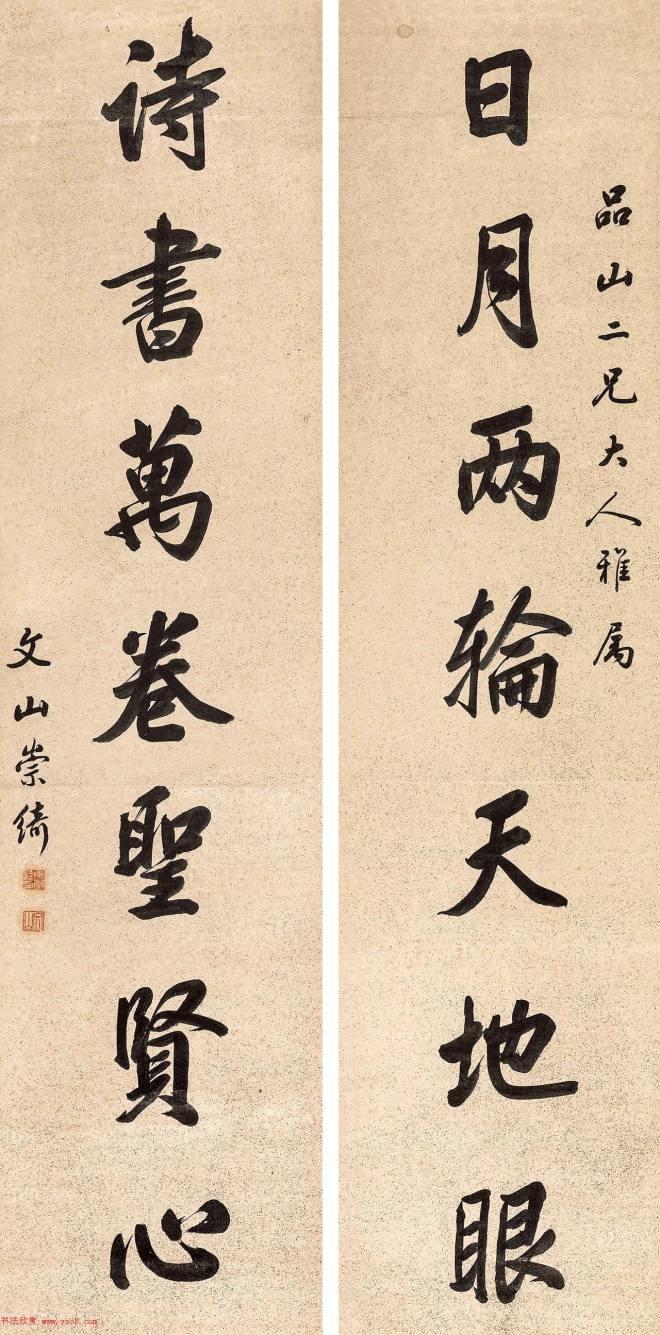 品山二兄大人雅属
日月两轮天地眼
诗书萬卷聖賢心
文山崇绮
书法欣赏 www.yac8.com